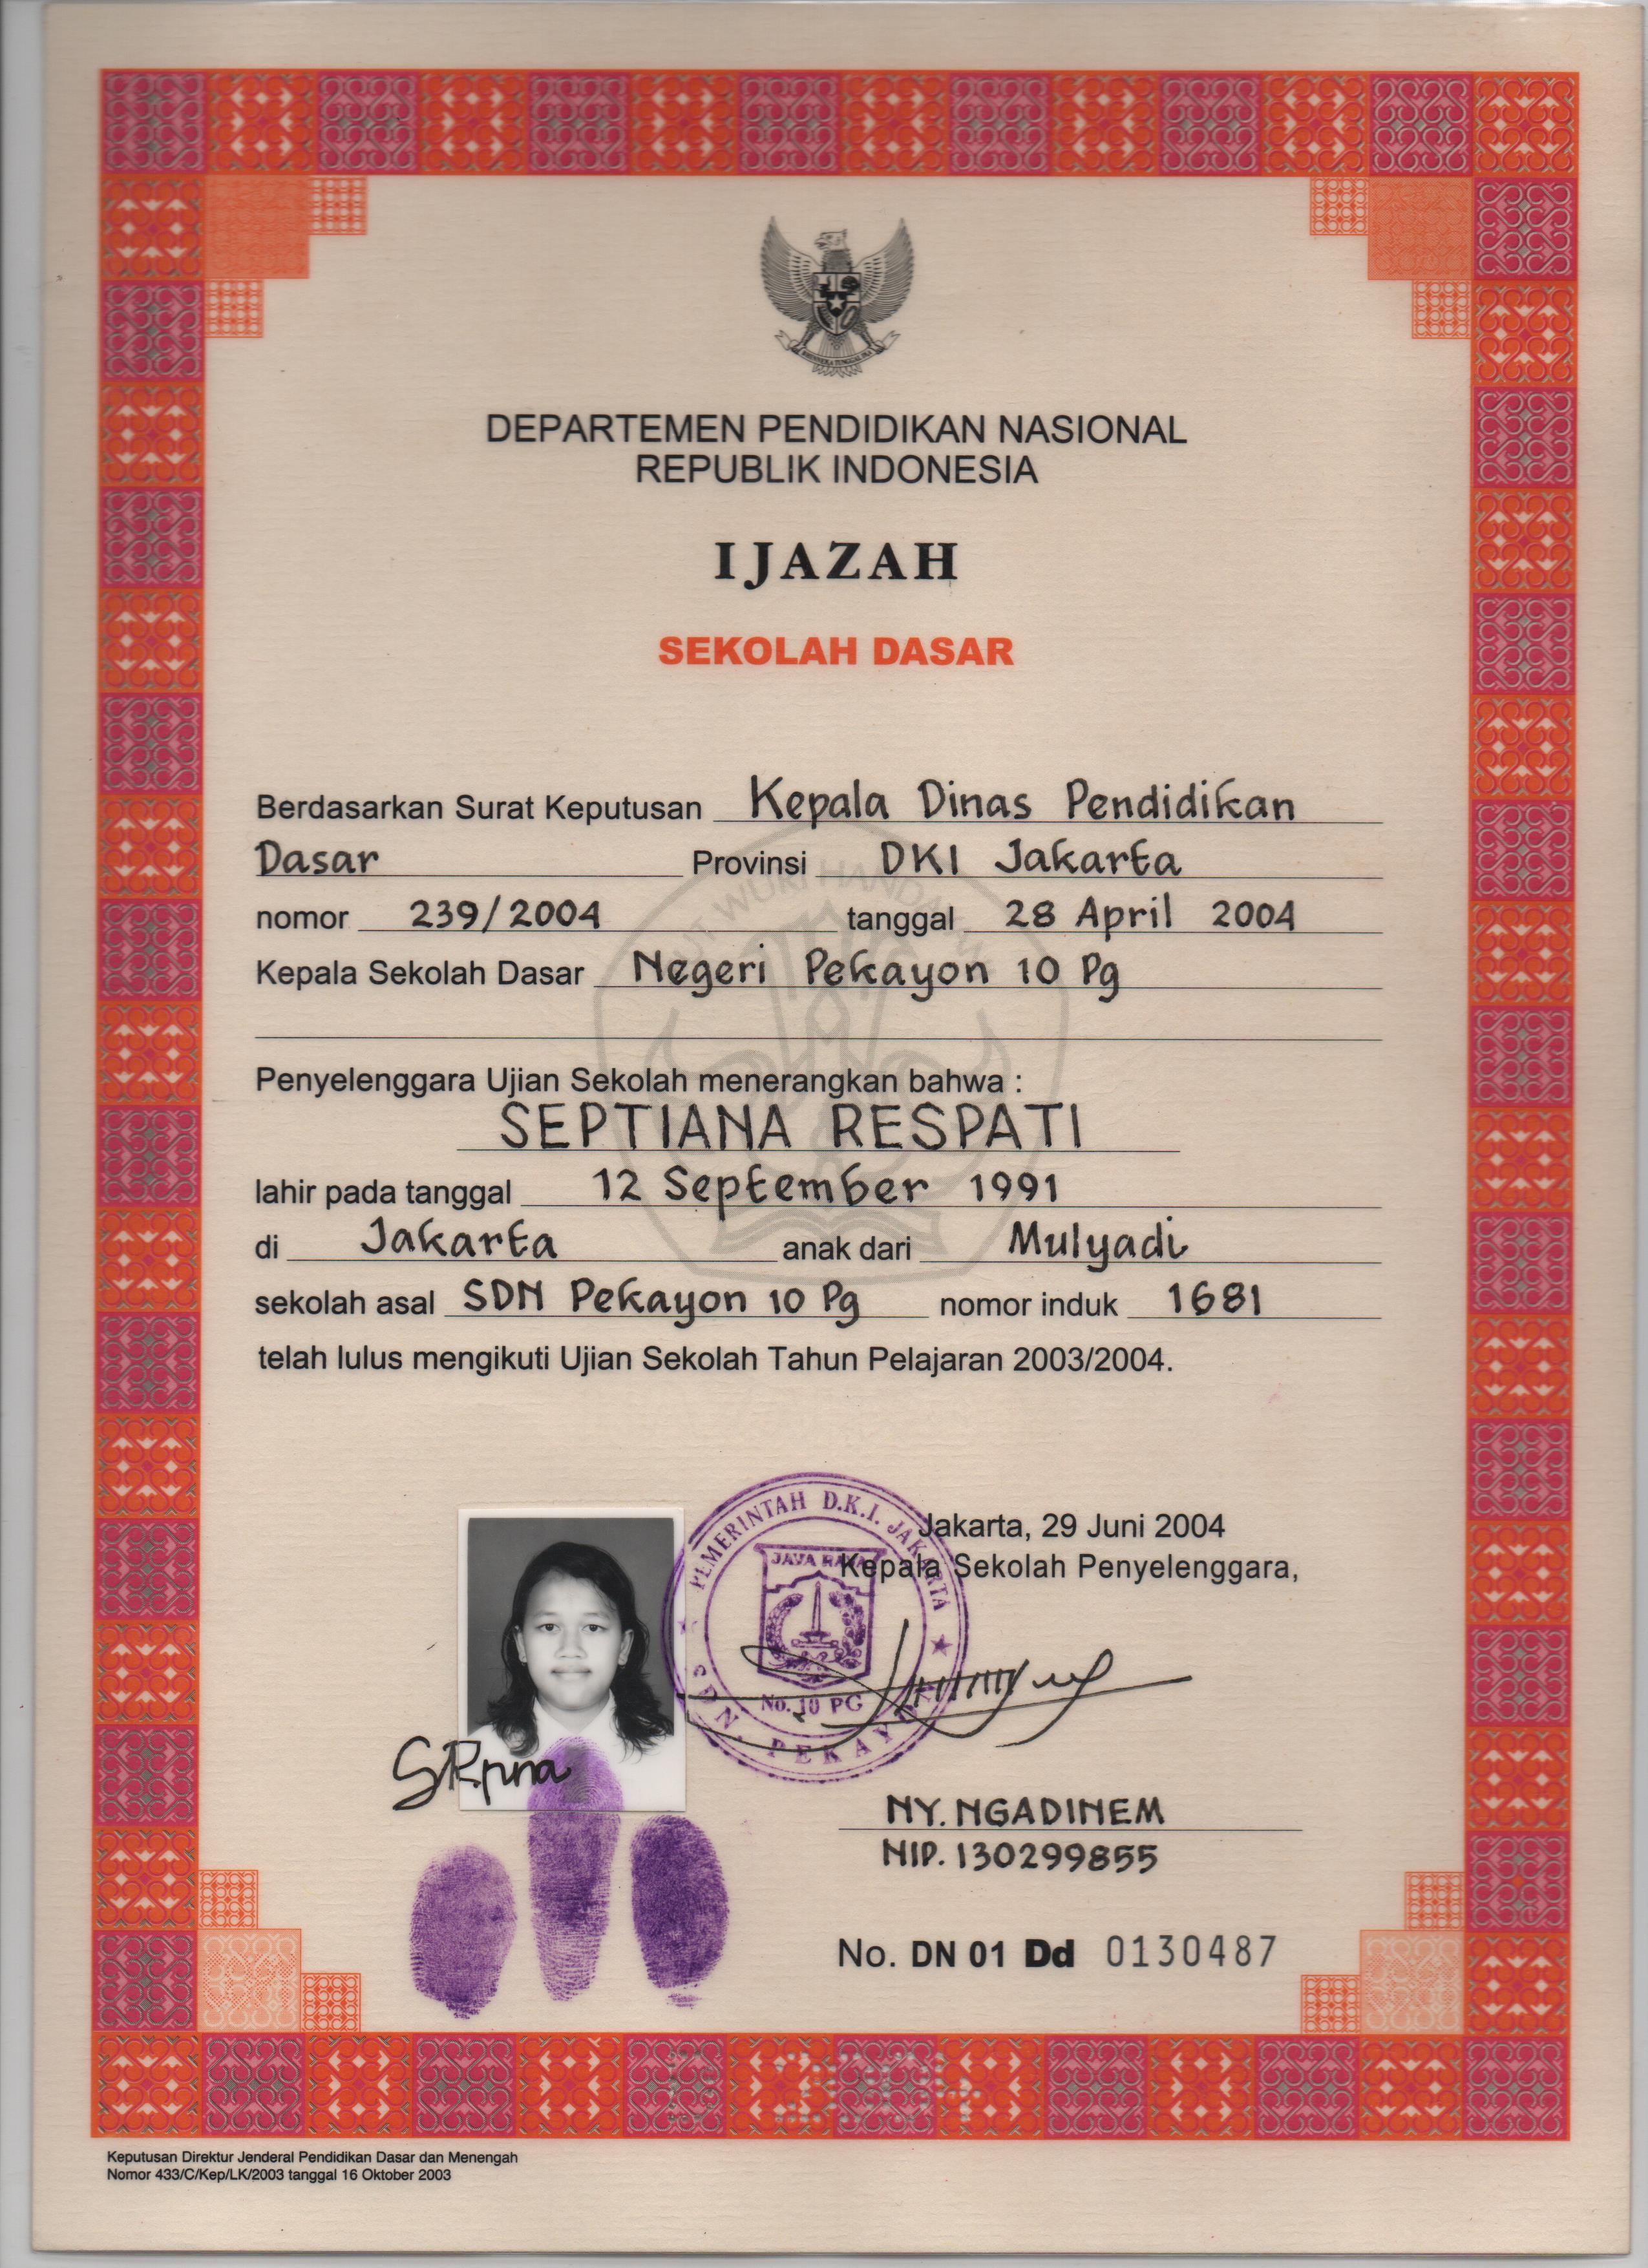 DEPARTEMEN PENDIDIKAN NASIONAL
REPUBLIK INDONESIA
IJAZAH
SEKOLAH DASAR
Berdasarkan Surat Keputusan Kepala Dinas Pendidikan
Dasar Provinsi DKI Jakarta
nomor 239/2004 tanggal 28 April 2004
Kepala Sekolah Dasar Negeri Pekayon 10 Pg
Penyelenggara Ujian Sekolah menerangkan bahwa :
SEPTIANA RESPATI
lahir pada tanggal 12 September 1991
di Jakarta anak dari Mulyadi
sekolah asal SDN Pekayon 10 Pg nomor induk 1681
telah lulus mengikuti Ujian Sekolah Tahun Pelajaran 2003/2004.
Jakarta, 29 Juni 2004
Kepala Sekolah Penyelenggara,
PEMERINTAH D.K.I. JAKARTA
JAYA RAYA
No. 10 PG
SDN. PEKAYON
NY. NGADINEM
NIP. 130299855
No. DN 01 Dd 0130487
Keputusan Direktur Jenderal Pendidikan Dasar dan Menengah
Nomor 433/C/Kep/LK/2003 tanggal 16 Oktober 2003